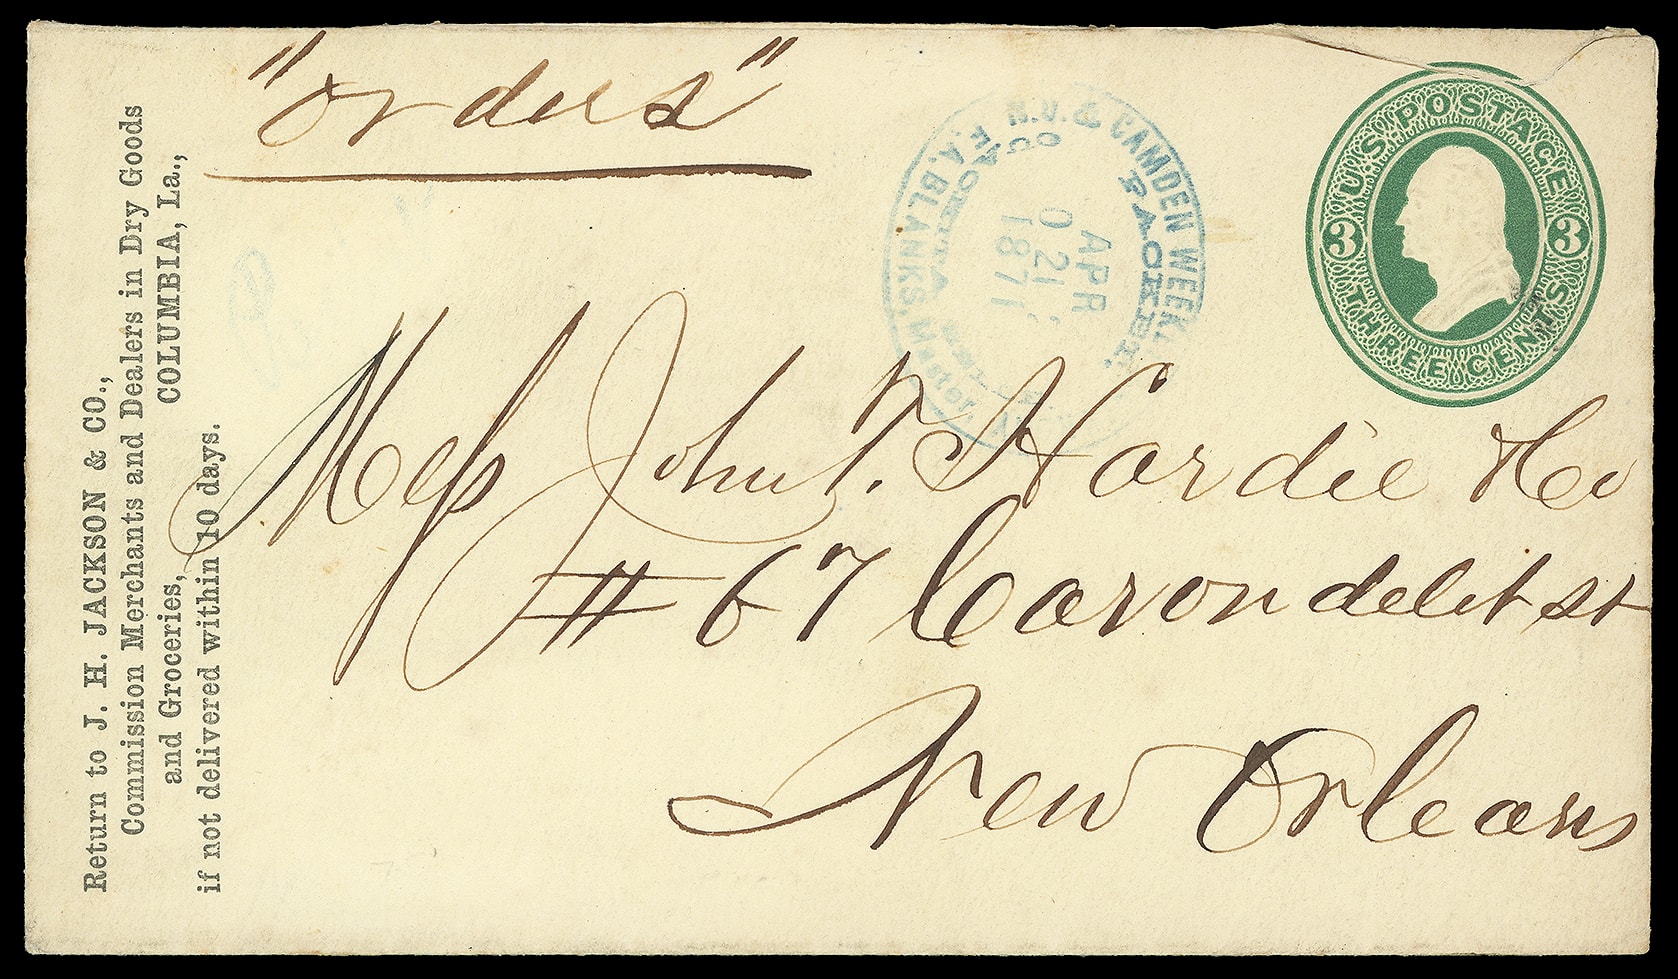 "Orders"
Return to J. H. JACKSON & CO.,
Commission Merchants and Dealers in Dry Goods
and Groceries, COLUMBIA, La.,
if not delivered within 10 days.
N.O. & CAMDEN WEEK.
PACKET.
F. A. BLANKS, Master.
APR
21
1871
U.S. POSTAGE
3 3
THREE CENTS
Mess John T. Hardie & Co
# 67 Carondelet st
New Orleans